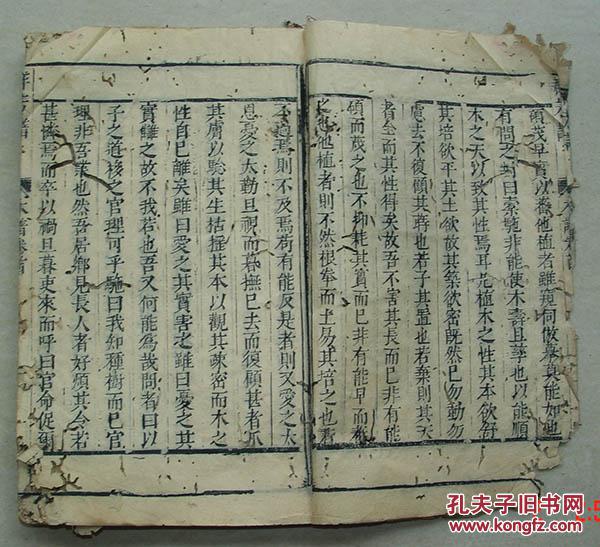 碩茂早實以蕃他植者雖窺伺傚慕莫能如也
有問之對曰橐駝非能使木壽且孳也以能順
木之天以致其性焉耳凡植木之性其本欲舒
其培欲平其土欲故其築欲密既然已勿動勿
慮去不復顧其蒔也若子其置也若棄則其天
者全而其性得矣故吾不害其長而已非有能
碩而茂之也不抑耗其實而已非有能早而蕃
之也他植者則不然根拳而土易其培之也若
不過焉則不及焉苟有能反是者則又愛之太
恩憂之太勤旦視而暮撫已去而復顧甚者爪
其膚以驗其生枯搖其本以觀其疎密而木之
性自已離矣雖曰愛之其實害之雖曰憂之其
實讎之故不我若也吾又何能為哉問者曰以
子之道移之官理可乎駝曰我知種樹而已官
理非吾業也然吾居鄉見長人者好煩其令若
甚憐焉而卒以禍旦暮吏來而呼曰官命促爾
孔夫子旧书网
www.kongfz.com